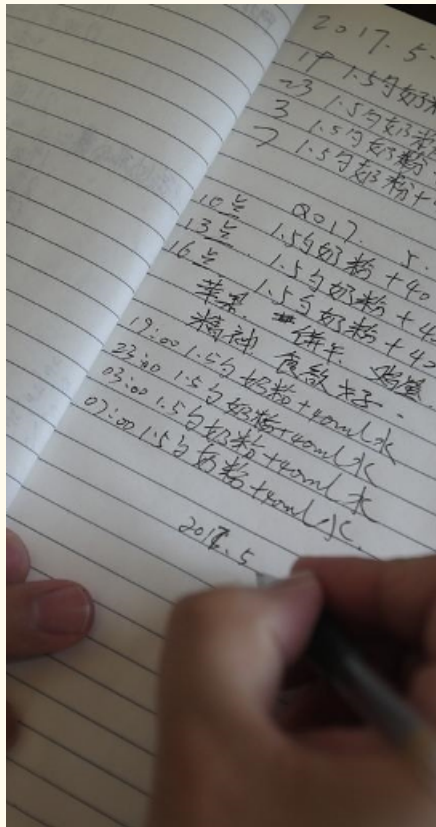 2017. 5.
19 1.5勺奶粉
23 1.5勺奶粉
3 1.5勺奶粉
7 1.5勺奶粉+
2017. 5.
10点 1.5勺奶粉+40
13点 1.5勺奶粉+40
16点 1.5勺奶粉+40
苹果. 饼干.
精神. 食欲好.
19:00 1.5勺奶粉+40ml水
23:00 1.5勺奶粉+40ml水
03:00 1.5勺奶粉+40ml水
07:00 1.5勺奶粉+40ml水.
2017.5